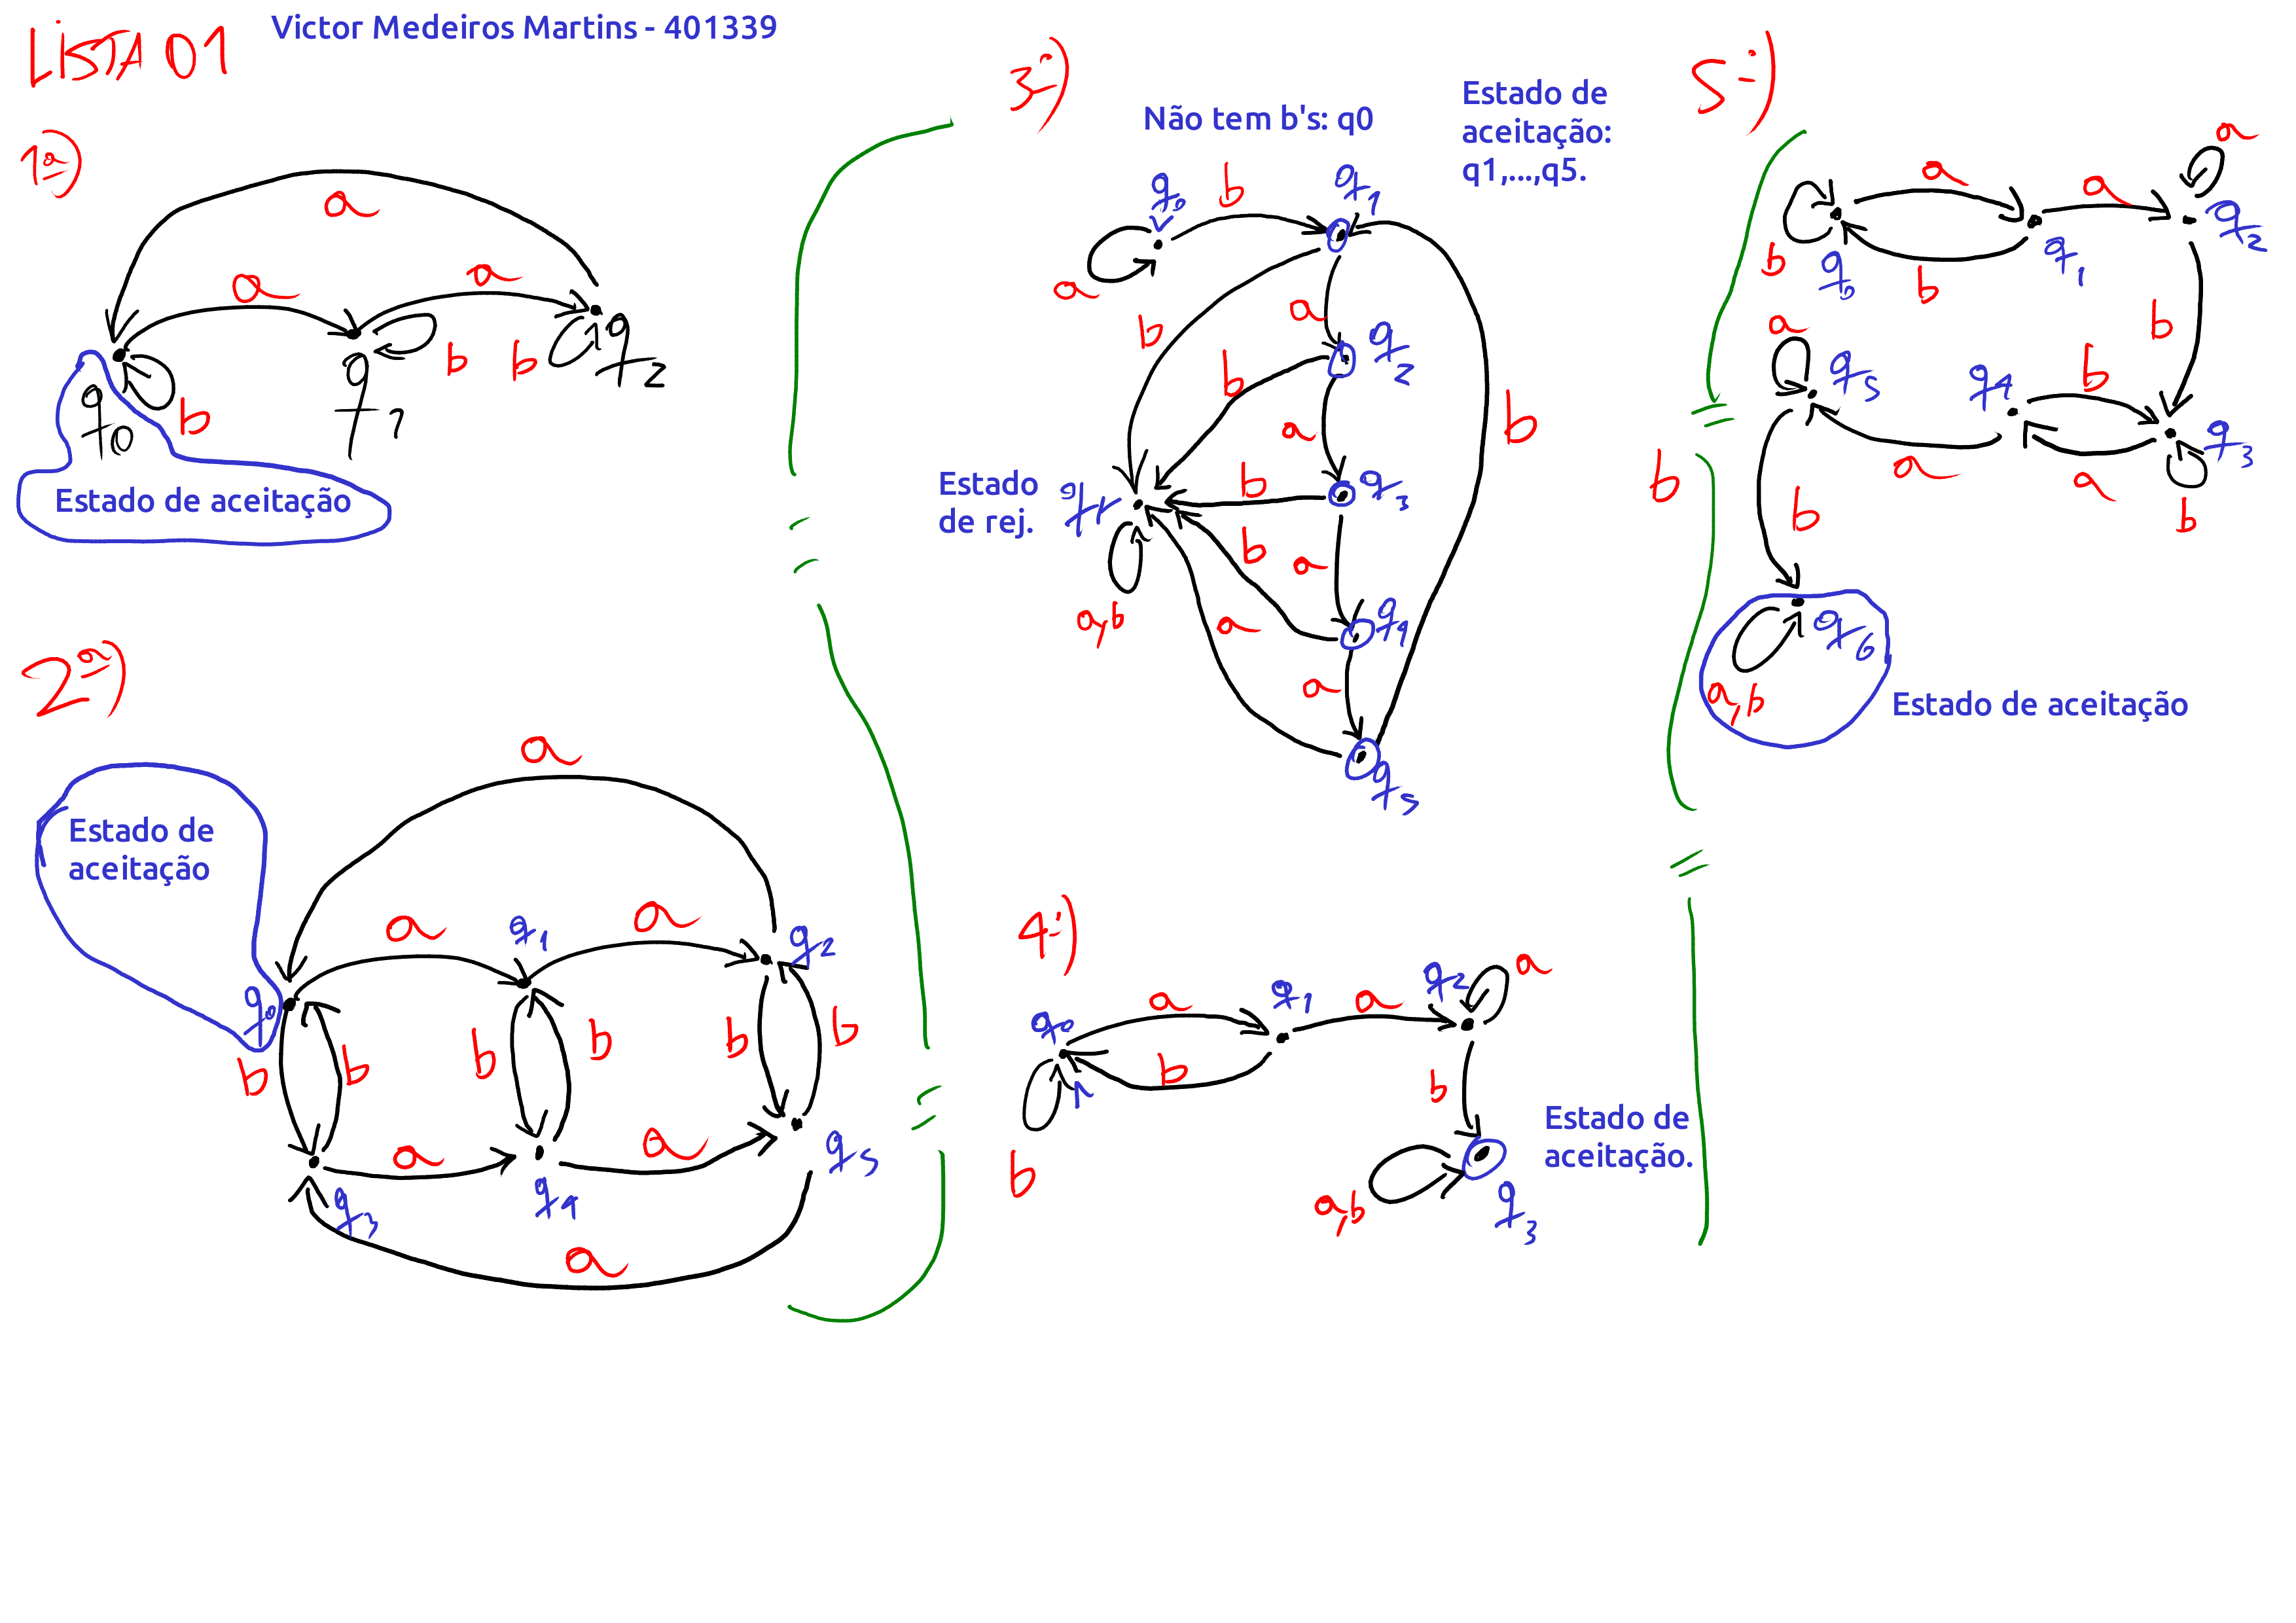 LISTA 01
Victor Medeiros Martins - 401339
1ª)
a
a
a
b
b
b
q0
q1
q2
Estado de aceitação
2ª)
Estado de
aceitação
a
a
a
q0
q1
q2
b
b
b
b
b
b
a
a
q3
q4
q5
a
3ª)
Não tem b's: q0
Estado de
aceitação:
q1,...,q5.
q0
b
q1
a
b
a
q2
b
a
b
Estado
de rej.
qr
b
q3
b
a
a,b
a
q4
a
q5
4ª)
q0
a
q1
a
q2
a
b
b
b
Estado de
aceitação.
a,b
q3
5ª)
a
a
a
b
q0
b
q1
q2
b
a
q5
q4
b
q3
b
a
a
b
b
q6
a,b
Estado de aceitação